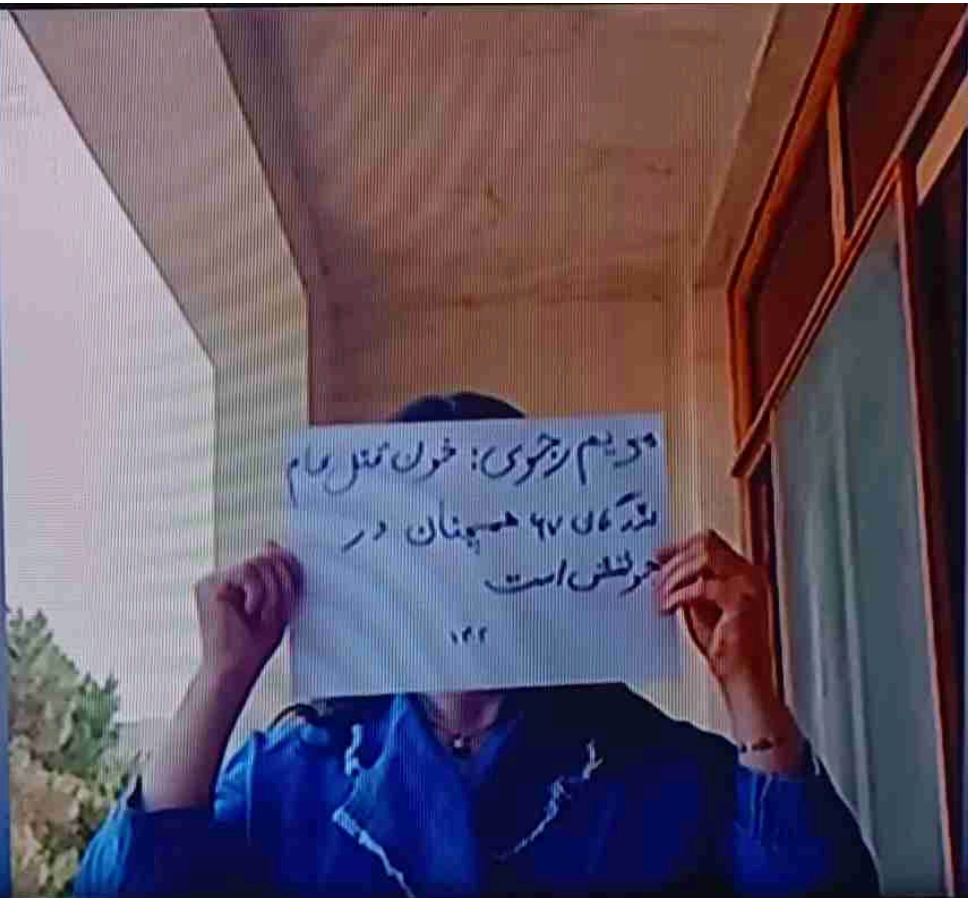 مریم رجوی: خون قتل عام
شدگان ۶۷ همچنان در
جوشش است